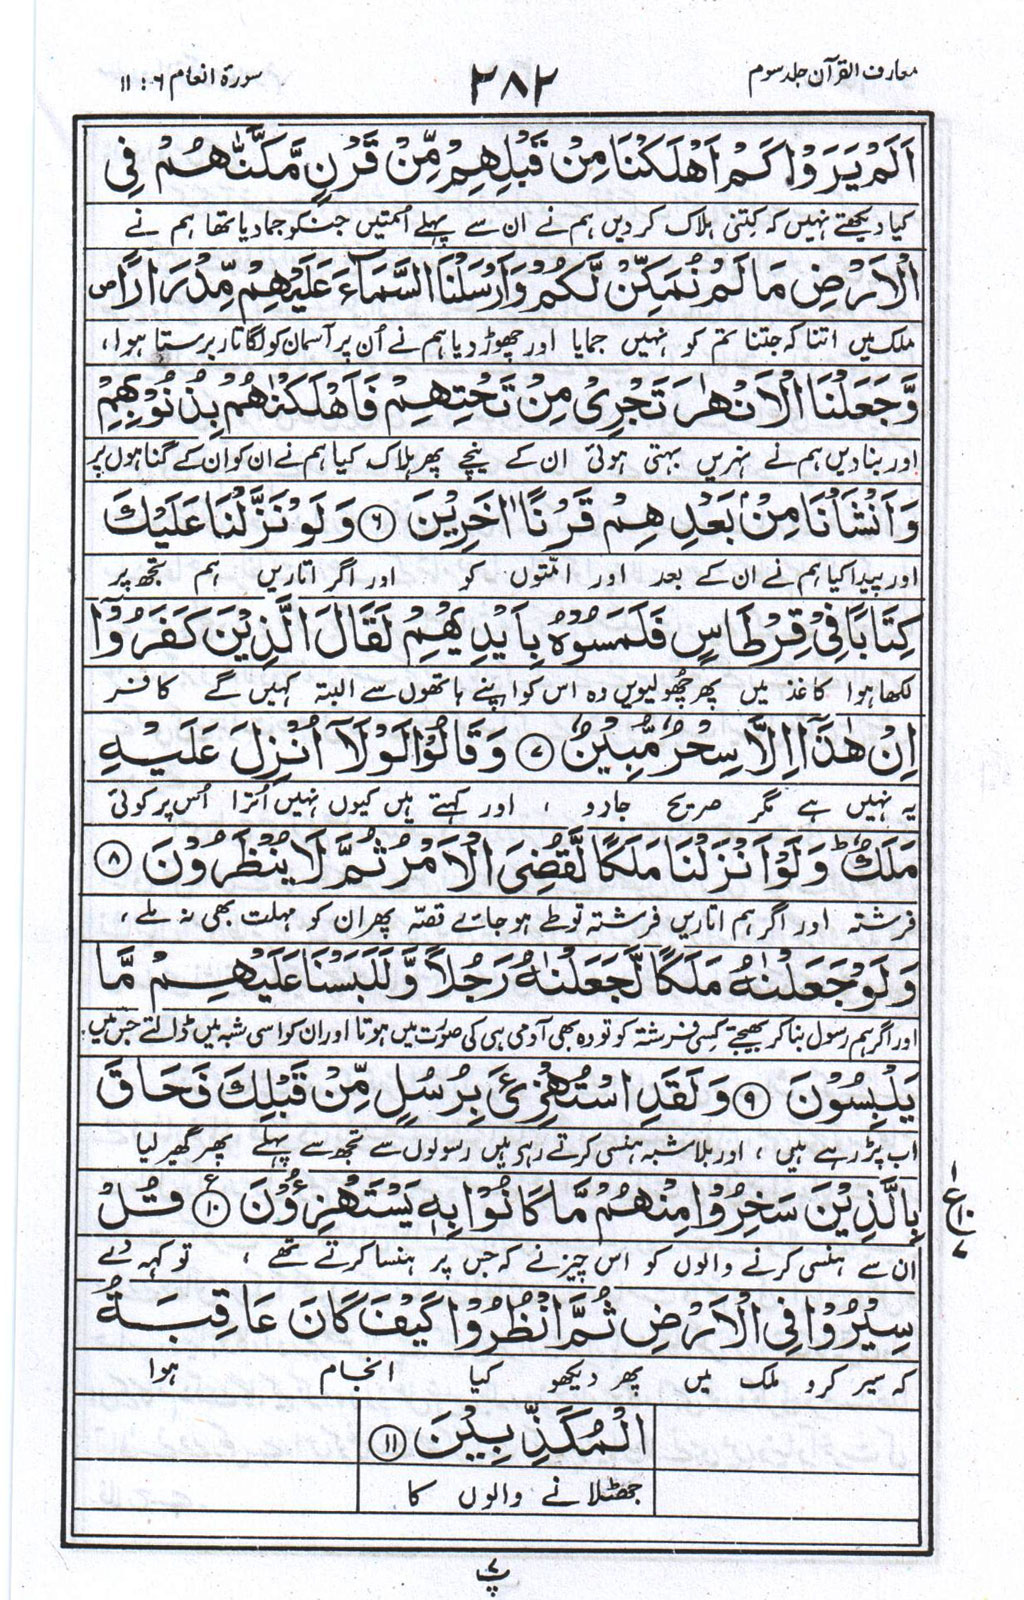 معارف القرآن جلد سوم
۲۸۲
سورۃ انعام ۶ : ۱۱
اَلَمْ يَرَوْا كَمْ اَهْلَكْنَا مِنْ قَبْلِهِمْ مِّنْ قَرْنٍ مَّكَّنّٰهُمْ فِى
کیا دیکھتے نہیں کہ کتنی ہلاک کر دیں ہم نے ان سے پہلے امتیں جنکو جما دیا تھا ہم نے
الْاَرْضِ مَا لَمْ نُمَكِّنْ لَّكُمْ وَاَرْسَلْنَا السَّمَآءَ عَلَيْهِمْ مِّدْرَارًا ص
ملک میں اتنا کہ جتنا تم کو نہیں جمایا اور چھوڑ دیا ہم نے اُن پر آسمان کو لگاتار برستا ہوا ،
وَّجَعَلْنَا الْاَنْهٰرَ تَجْرِىْ مِنْ تَحْتِهِمْ فَاَهْلَكْنٰهُمْ بِذُنُوْبِهِمْ
اور بنا دیں ہم نے نہریں بہتی ہوئی ان کے نیچے پھر ہلاک کیا ہم نے ان کو ان کے گناہوں پر
وَاَنْشَاْنَا مِنْۢ بَعْدِهِمْ قَرْنًا اٰخَرِيْنَ ۶ وَلَوْ نَزَّلْنَا عَلَيْكَ
اور پیدا کیا ہم نے ان کے بعد اور امّتوں کو اور اگر اتاریں ہم تجھ پر
كِتَابًا فِىْ قِرْطَاسٍ فَلَمَسُوْهُ بِاَيْدِيْهِمْ لَقَالَ الَّذِيْنَ كَفَرُوْٓا
لکھا ہوا کاغذ میں پھر چُھو لیویں وہ اس کو اپنے ہاتھوں سے البتہ کہیں گے کافر
اِنْ هٰذَآ اِلَّا سِحْرٌ مُّبِيْنٌ ۷ وَقَالُوْا لَوْلَآ اُنْزِلَ عَلَيْهِ
یہ نہیں ہے مگر صریح جادو ، اور کہتے ہیں کیوں نہیں اُترا اُس پر کوئی
مَلَكٌ ط وَلَوْ اَنْزَلْنَا مَلَكًا لَّقُضِىَ الْاَمْرُ ثُمَّ لَا يُنْظَرُوْنَ ۸
فرشتہ اور اگر ہم اتاریں فرشتہ تو طے ہو جائے قصّہ پھر ان کو مہلت بھی نہ ملے ،
وَلَوْ جَعَلْنٰهُ مَلَكًا لَّجَعَلْنٰهُ رَجُلًا وَّلَلَبَسْنَا عَلَيْهِمْ مَّا
اور اگر ہم رسول بنا کر بھیجتے کسی فرشتہ کو تو وہ بھی آدمی ہی کی صورت میں ہوتا اور ان کو اسی شبہ میں ڈالتے جس میں
يَلْبِسُوْنَ ۹ وَلَقَدِ اسْتُهْزِئَ بِرُسُلٍ مِّنْ قَبْلِكَ فَحَاقَ
اب پڑ رہے ہیں ، اور بلا شبہ ہنسی کرتے رہے ہیں رسولوں سے تجھ سے پہلے پھر گھیر لیا
بِالَّذِيْنَ سَخِرُوْا مِنْهُمْ مَّا كَانُوْا بِهٖ يَسْتَهْزِءُوْنَ ۱۰ قُلْ
ان سے ہنسی کرنے والوں کو اس چیز نے کہ جس پر ہنسا کرتے تھے ، تو کہہ دے
سِيْرُوْا فِى الْاَرْضِ ثُمَّ انْظُرُوْا كَيْفَ كَانَ عَاقِبَةُ
کہ سیر کرو ملک میں پھر دیکھو کیا انجام ہوا
الْمُكَذِّبِيْنَ ۱۱
جھٹلانے والوں کا